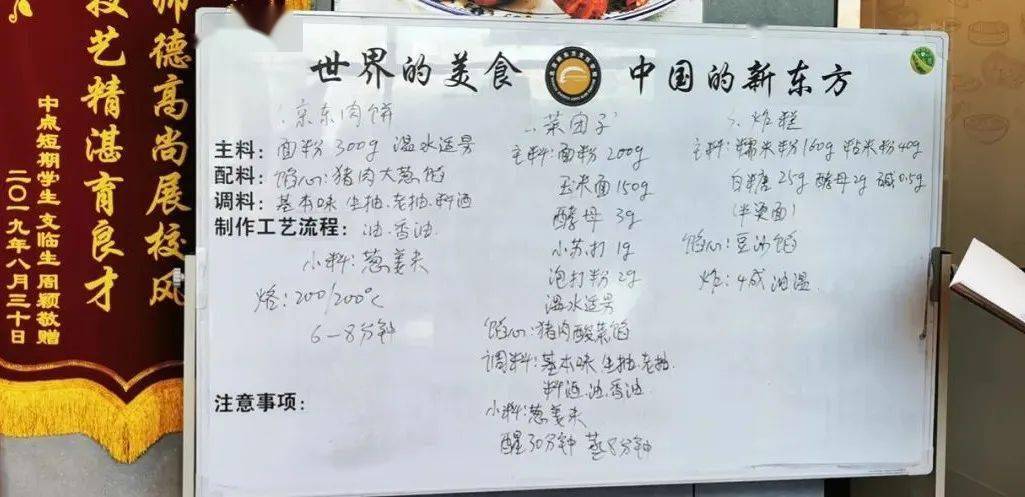 师德高尚展校风
技艺精湛育良才
中点短期学生 文临生 周颖敬赠
二〇一九年八月三十日
世界的美食 中国的新东方
一、京东肉饼
主料：面粉 300g 温水适量
配料：馅心：猪肉大葱馅
调料：基本味 生抽.老抽.料酒
制作工艺流程：油.香油.
小料：葱姜末
烙：200/200℃
6-8分钟
注意事项：
二、菜团子
主料：面粉 200g
玉米面 150g
酵母 3g
小苏打 1g
泡打粉 2g
温水适量
馅心：猪肉酸菜馅
调料：基本味 生抽.老抽.
料酒.油.香油.
小料：葱姜末
醒30分钟 蒸8分钟
3、炸糕
主料：糯米粉 160g 粘米粉 40g
白糖 25g 酵母 2g 碱 0.5g
(半烫面)
馅心：豆沙馅
炸：4成油温.